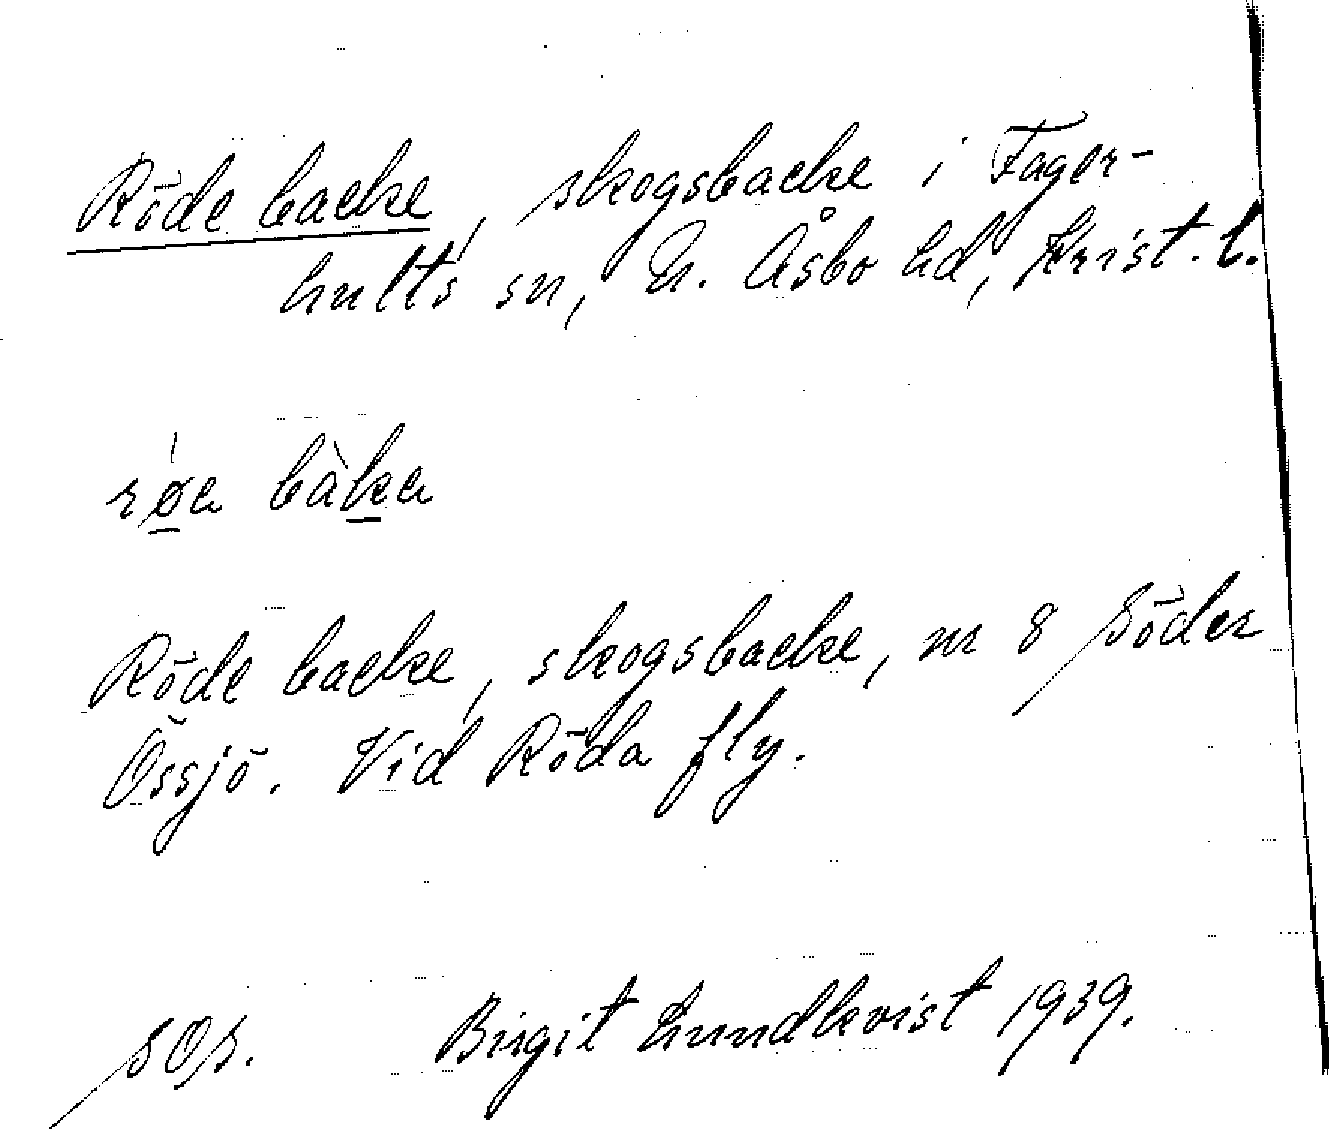 Röde backe, skogsbacke i Fager-
hults sn, N. Åsbo hd, Krist. l.
røa bàka
Röde backe, skogsbacke, nr 8 Söder
Össjö. Vid Röda fly.
sOs. Birgit Lundkvist 1939.